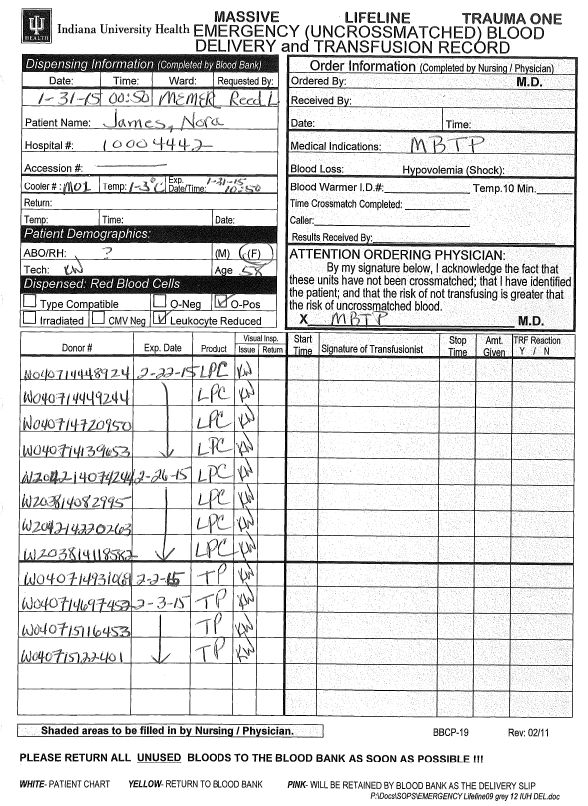 MASSIVE LIFELINE TRAUMA ONE
Indiana University Health EMERGENCY (UNCROSSMATCHED) BLOOD
HEALTH DELIVERY and TRANSFUSION RECORD
Dispensing Information (Completed by Blood Bank)
Date: Time: Ward: Requested By:
1-31-15 00:50 MEMER Reed L
Patient Name: James, Nora
Hospital #: 10004442
Accession #:
Cooler #: M01 Temp: 1-3°C Exp. Date/Time: 1-31-15 10:50
Return:
Temp: Time: Date:
Patient Demographics:
ABO/RH: ? (M) (F)
Tech: KW Age 58
Dispensed: Red Blood Cells
Type Compatible O-Neg O-Pos
Irradiated CMV Neg Leukocyte Reduced
Order Information (Completed by Nursing / Physician)
Ordered By: M.D.
Received By:
Date: Time:
Medical Indications: MBTP
Blood Loss: Hypovolemia (Shock):
Blood Warmer I.D.#: Temp.10 Min.
Time Crossmatch Completed:
Caller:
Results Received By:
ATTENTION ORDERING PHYSICIAN:
By my signature below, I acknowledge the fact that
these units have not been crossmatched; that I have identified
the patient; and that the risk of not transfusing is greater that
the risk of uncrossmatched blood.
X MBTP M.D.
Donor # Exp. Date Product Visual Insp. Issue Return Start Time Signature of Transfusionist Stop Time Amt. Given TRF Reaction Y / N
W040714448924 2-22-15 LPC KW
W040714449244 LPC KW
W040714720950 LPC KW
W040714139653 LPC KW
2-26-15 LPC KW
W203814082995 LPC KW
W204214220263 LPC KW
W203814118582 LPC KW
2-2-15 TP KW
W040714697452 2-3-15 TP KW
W040715116453 TP KW
W040715122401 TP KW
Shaded areas to be filled in by Nursing / Physician. BBCP-19 Rev: 02/11
PLEASE RETURN ALL UNUSED BLOODS TO THE BLOOD BANK AS SOON AS POSSIBLE !!!
WHITE- PATIENT CHART YELLOW- RETURN TO BLOOD BANK PINK- WILL BE RETAINED BY BLOOD BANK AS THE DELIVERY SLIP
P:\Docs\SOPS\EMERGENCY Lifeline09 grey 12 IUH DEL.doc